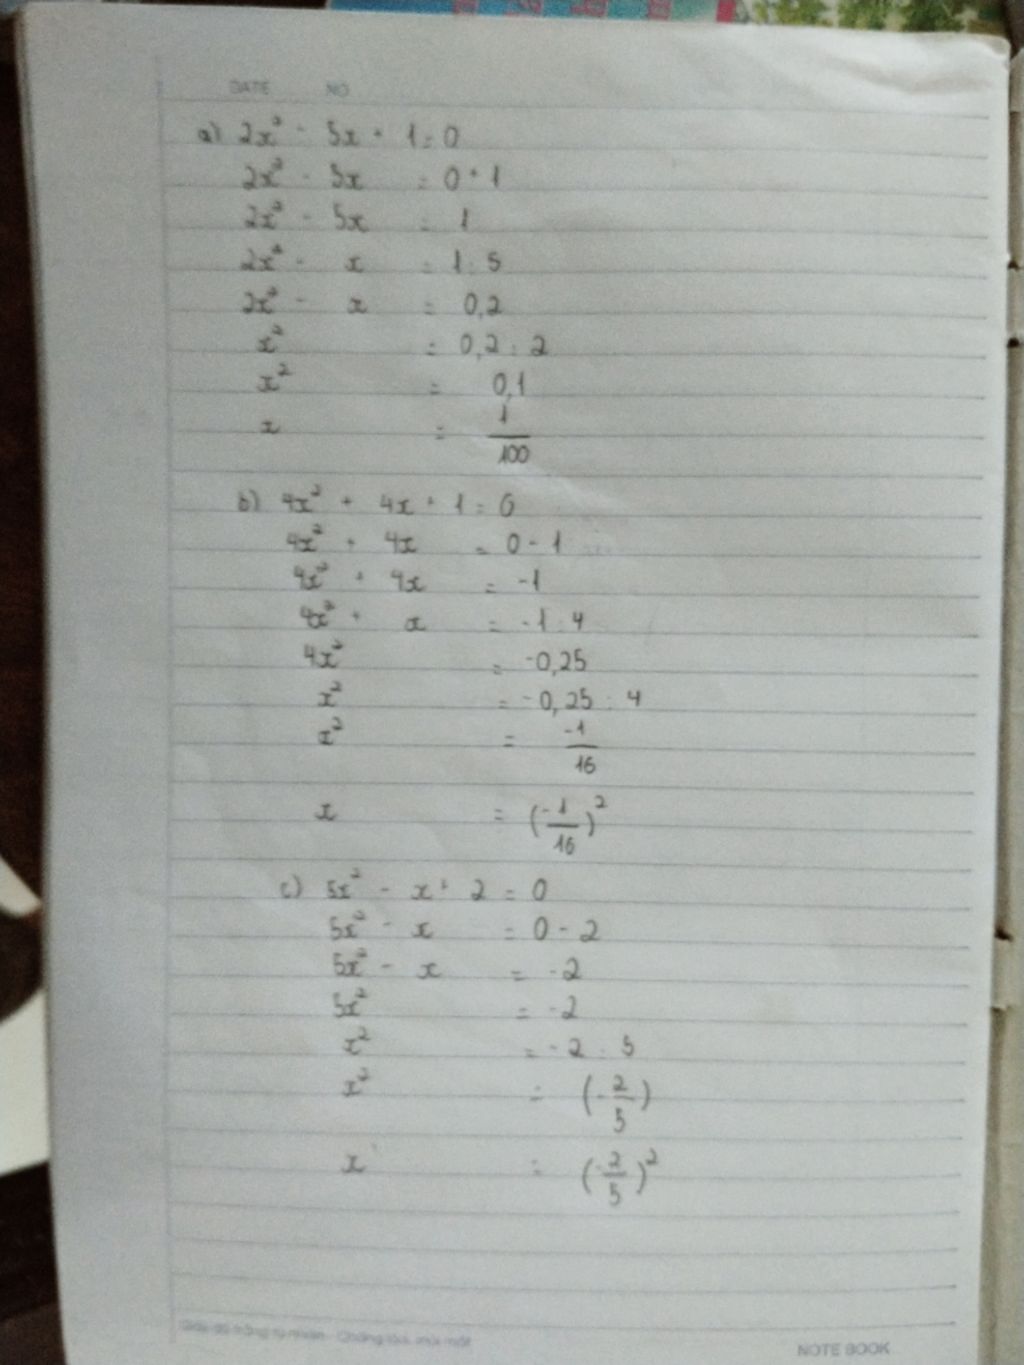 DATE NO
a) 2x² - 5x + 1 = 0
2x² - 5x = 0 + 1
2x² - 5x = 1
2x² - x = 1 : 5
2x² - x = 0,2
x² = 0,2 : 2
x² = 0,1
x = 1/100
b) 4x² + 4x + 1 = 0
4x² + 4x = 0 - 1
4x² + 4x = -1
4x² + x = -1 : 4
4x² = -0,25
x² = -0,25 : 4
x² = -1/16
x = (-1/16)²
c) 5x² - x + 2 = 0
5x² - x = 0 - 2
5x² - x = -2
5x² = -2
x² = -2 : 5
x² = (-2/5)
x = (-2/5)²
NOTE BOOK